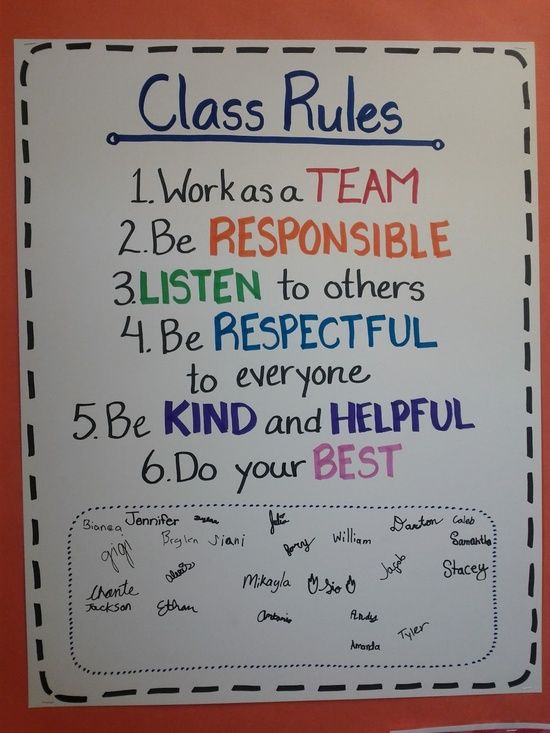 Class Rules
1. Work as a TEAM
2. Be RESPONSIBLE
3. LISTEN to others
4. Be RESPECTFUL
to everyone
5. Be KIND and HELPFUL
6. Do your BEST
Bianca Jennifer Julia Darton Caleb
gigi Brylen Siani William Samantha
Alexis Jacob Stacey
Chante Mikayla
Jackson Ethan Antonio Andy
Amanda Tyler